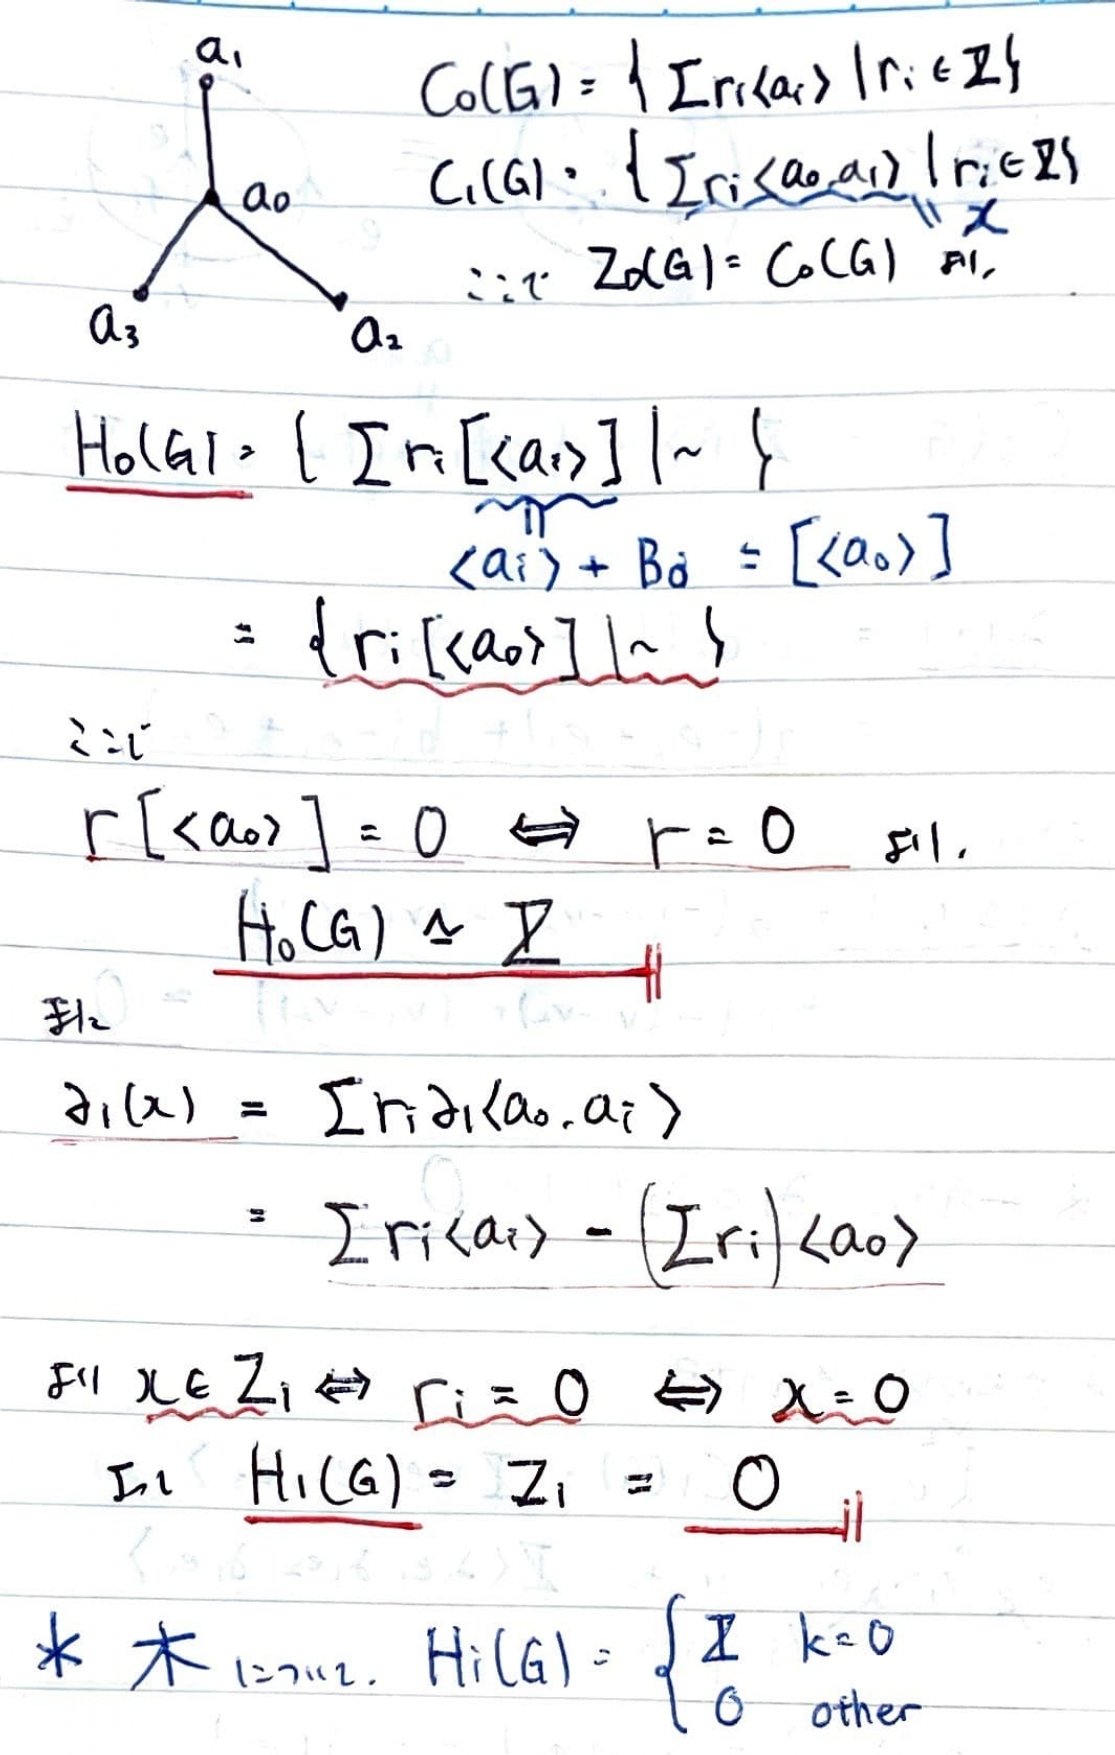 a₁
a₀
a₃
a₂
C₀(G) = { Σrᵢ<aᵢ> | rᵢ ∈ ℤ}
C₁(G) = { Σrᵢ<a₀,aᵢ> | rᵢ ∈ ℤ}
= x
ここで Z₀(G) = C₀(G) より,
H₀(G) = { Σ rᵢ [<aᵢ>] | ~ }
=
<aᵢ> + B₀ = [<a₀>]
= { rᵢ [<a₀>] | ~ }
ここで
r [<a₀>] = 0 ⇔ r = 0 より.
H₀(G) ≃ ℤ
また
∂₁(x) = Σ rᵢ ∂₁<a₀, aᵢ>
= Σ rᵢ<aᵢ> - (Σ rᵢ) <a₀>
より x ∈ Z₁ ⇔ rᵢ = 0 ⇔ x = 0
よって H₁(G) = Z₁ = 0
* 木 について. Hᵢ(G) = { ℤ k=0
0 other